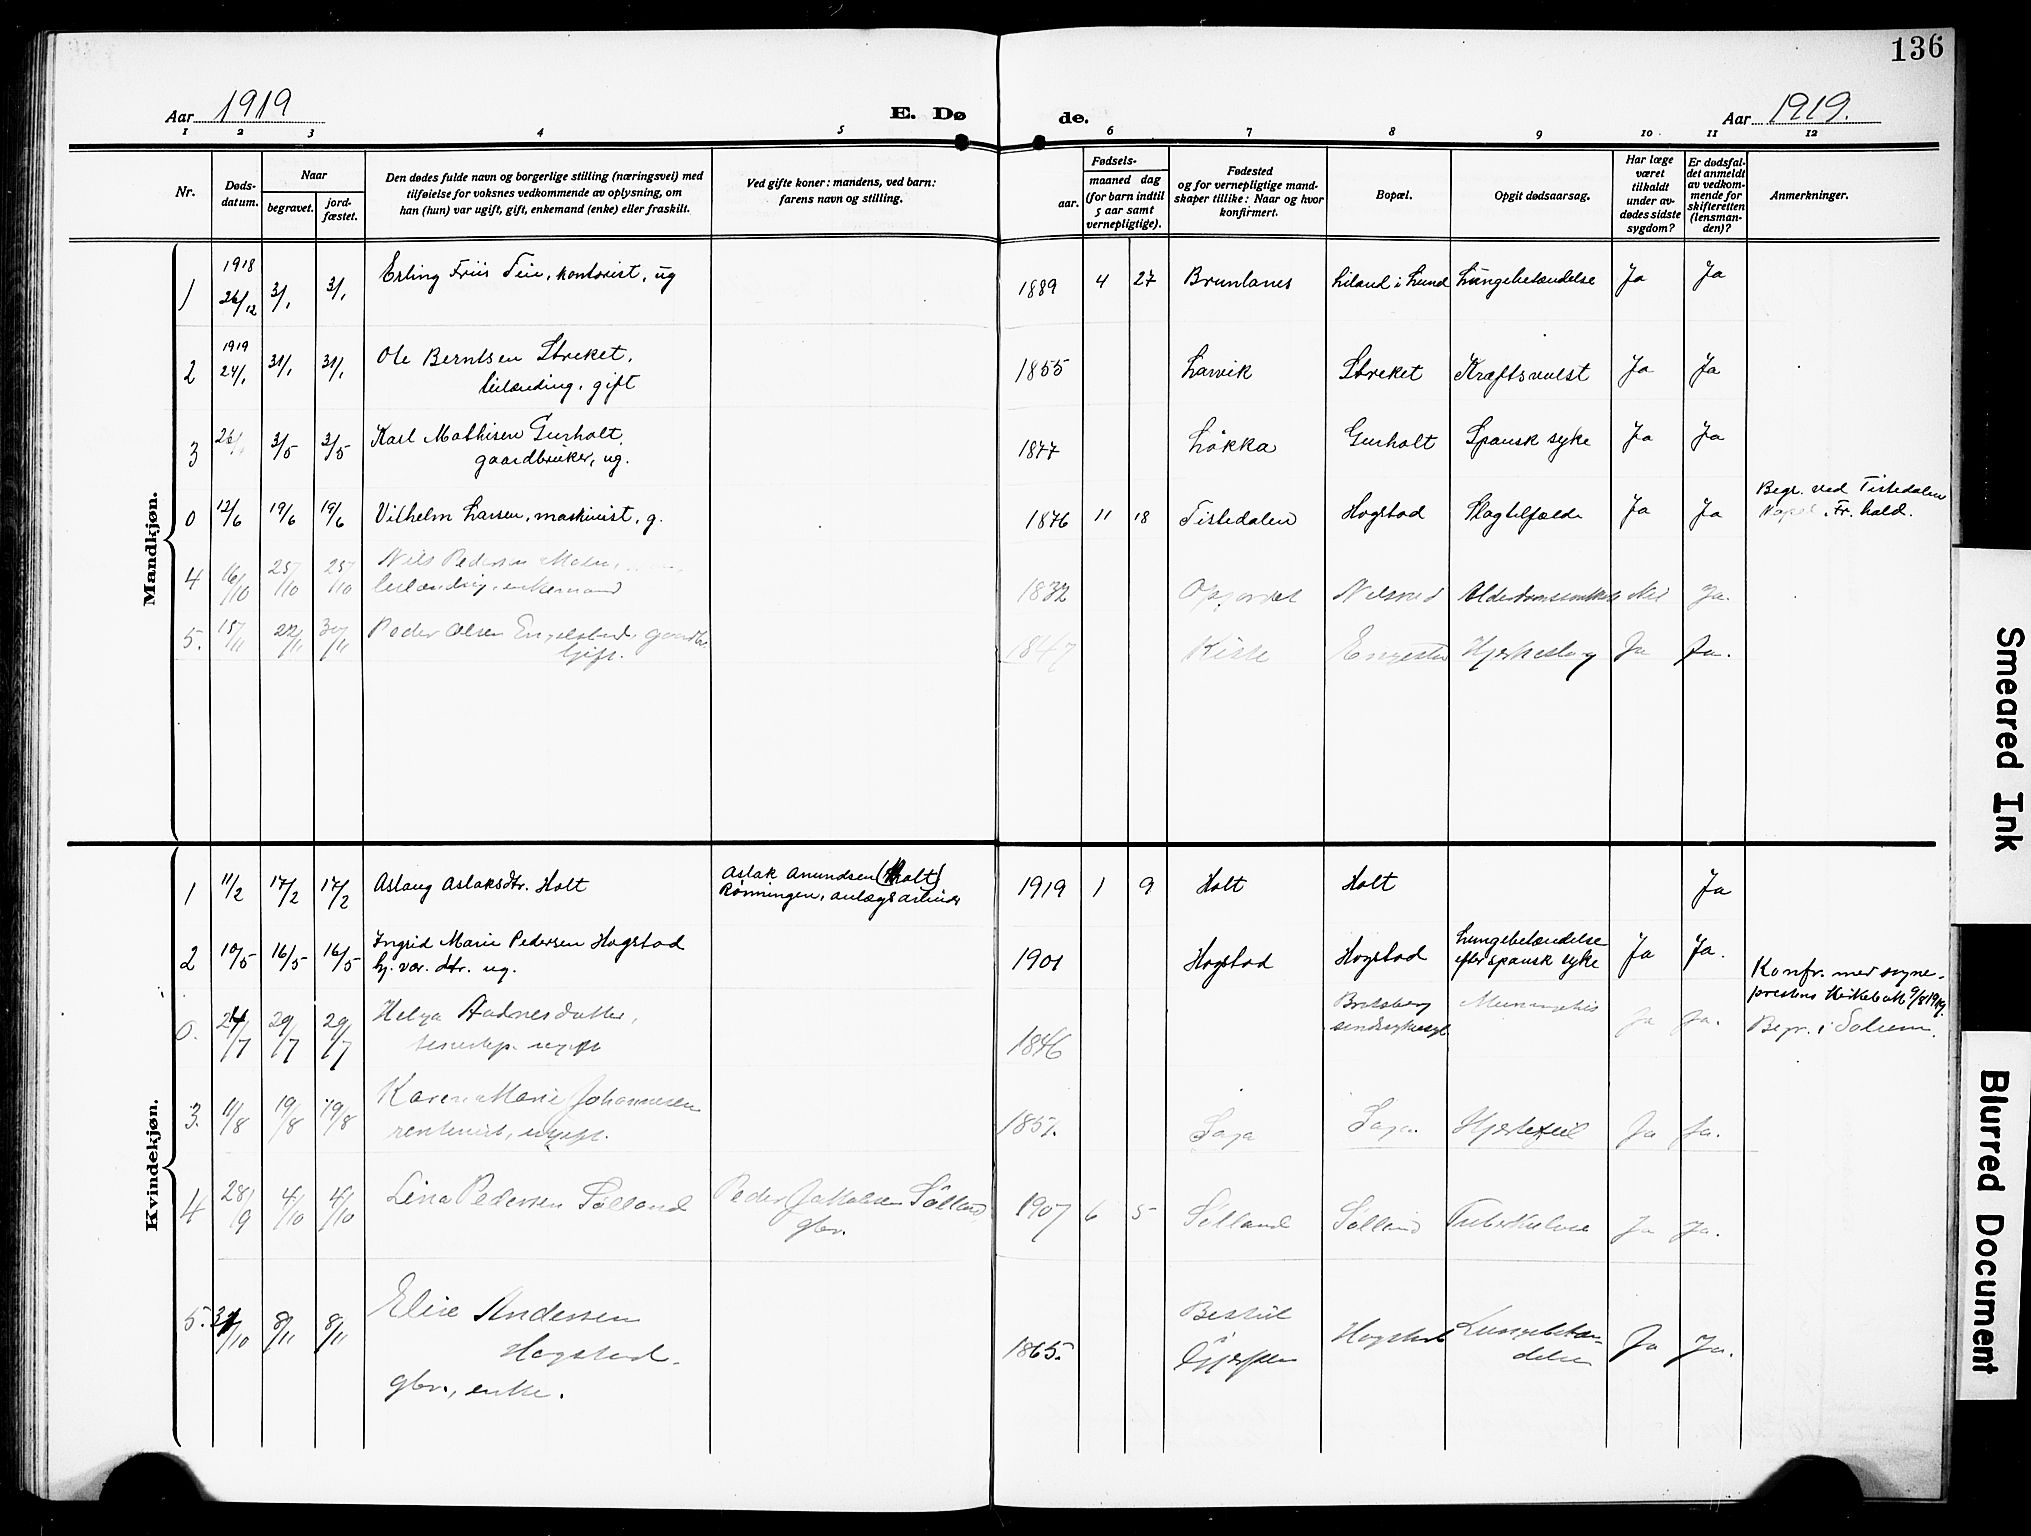 136
Aar 1919
E. Dø
de.
Aar 1919.
1 2 3 4 5 6 7 8 9 10 11 12
Nr.
Døds-
datum.
Naar
begravet.
jord-
fæstet.
Den dødes fulde navn og borgerlige stilling (næringsvei) med
tilføielse for voksnes vedkommende av oplysning, om
han (hun) var ugift, gift, enkemand (enke) eller fraskilt.
Ved gifte koner: mandens, ved barn:
farens navn og stilling.
Fødsels-
aar.
maaned dag
(for barn indtil
5 aar samt
vernepligtige).
Fødested
og for vernepligtige mand-
skaper tillike: Naar og hvor
konfirmert.
Bopæl.
Opgit dødsaarsag.
Har læge
været
tilkaldt
under av-
dødes sidste
sygdom?
Er dødsfal-
det anmeldt
av vedkom-
mende for
skifteretten
(lensman-
den)?
Anmerkninger.
Mandkjøn.
1 1918 26/12 3/1 3/1 Erling Friis Teie, kontorist, ug 1889 4 27 Brunlanes Liland i Lund Lungebetændelse Ja Ja
2 1919 24/1 31/1 31/1 Ole Berntsen Streket,
leilænding, gift 1855 Larvik Streket Kræftsvulst Ja Ja
3 26/4 3/5 3/5 Karl Mathisen Gurholt,
gaardbruker, ug. 1877 Løkka Gurholt Spansk syke Ja Ja
0 12/6 19/6 19/6 Vilhelm Larsen, maskinist, g. 1876 11 18 Tistedalen Hogstad Slagtilfælde Ja Ja
Begr. ved Tistedalen
Fr. hald.
4 16/10 25/10 25/10 Nils Pedersen
leilænding, enkemand 1832 Nei Ja.
5. 15/11 22/11 30/11 Peder Olsen Engelstad, gaardbr.
Gift. 1847 Kisse Ja Ja.
Kvindekjøn.
1 11/2 17/2 17/2 Aslaug Aslaksdtr. Holt Aslak Amundsen (Holt)
Rønningen, anlægsarbeider 1919 1 9 Holt Holt Ja
2 10/5 16/5 16/5 Ingrid Marie Pedersen Hogstad
hj. vær. dtr. ug. 1901 Hogstad Hogstad Lungebetændelse
efter spansk syke Ja Ja.
Konfr. med sogne-
prestens kirkebok 9/8 1919.
0. 24/7 29/7 29/7 Helga Aadnesdatter,
ugift 1846 Bratsberg
sindssykeasyl Ja Ja. Begr. i Solum.
3. 11/8 19/8 19/8 Karen Marie Johannesen
rentenist, ugift. 1857. Saga Saga. Hjertefeil Ja Ja.
4 28/9 4/10 4/10 Lina Pedersen Sølland Peder Jakobsen Sølland,
gbr. 1907 6 5 Sølland Sølland Tuberkulose Ja Ja.
5. 31/10 8/11 8/11 Elise Andersen
Hogstad.
gbr., enke. 1865. Bestul
i Gjerpen Hogstad Lungebetæn-
delse Ja Ja.
Smeared Ink
Blurred Document